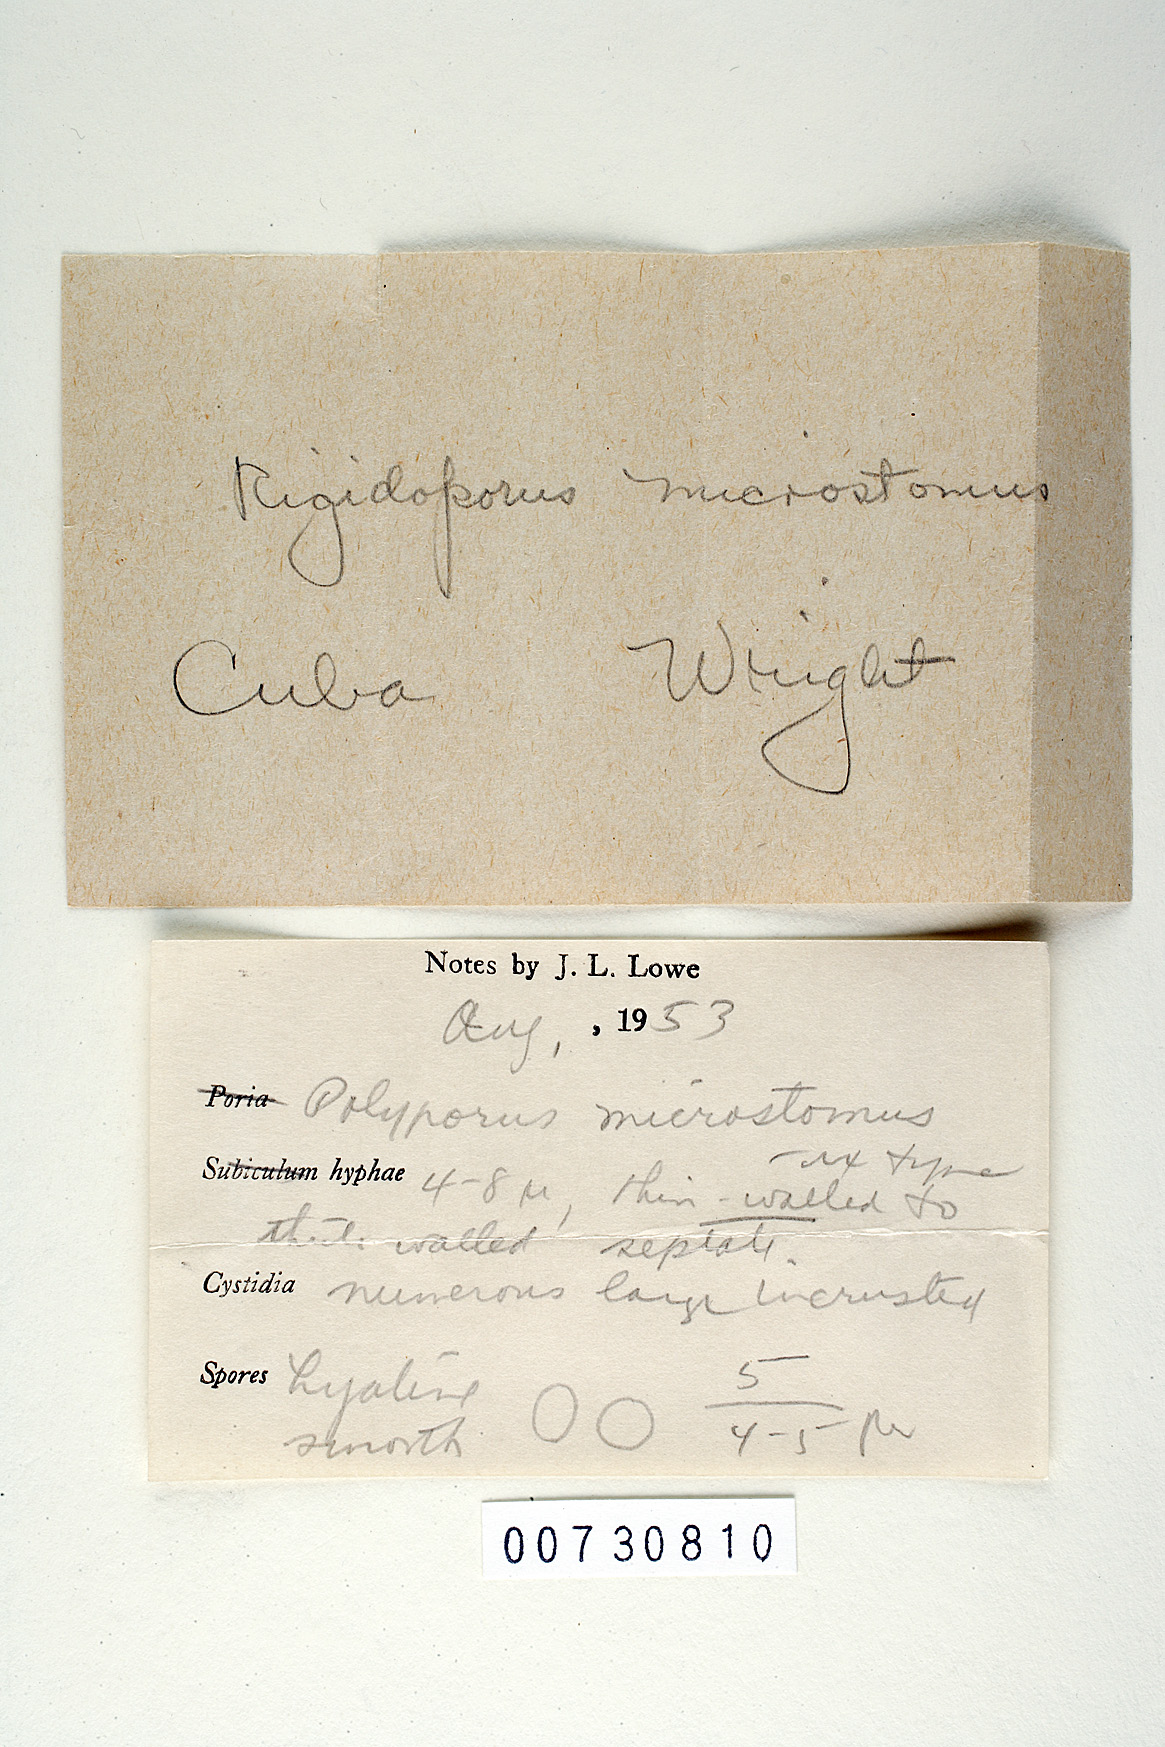 Rigidoporus microstomus
Cuba Wright
Notes by J. L. Lowe
Aug, , 1953
Poria Polyporus microstomus
- ex type
Subiculum hyphae 4-8 µ, thin-walled to
walled septate.
Cystidia numerous large incrusted
Spores hyaline
smooth
5
4-5 µ
00730810